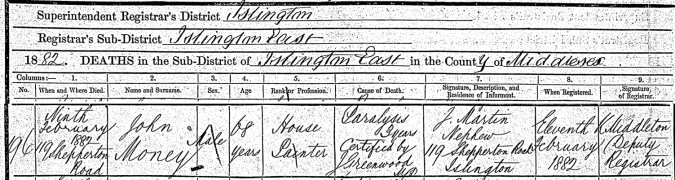 Superintendent Registrar's District Islington
Registrar's Sub-District Islington East
1882. DEATHS in the Sub-District of Islington East in the County of Middlesex
Columns:— 1. 2. 3. 4. 5. 6. 7. 8. 9.
No. When and Where Died. Name and Surname. Sex. Age Rank or Profession. Cause of Death. Signature, Description, and Residence of Informant. When Registered. Signature of Registrar.
196
Ninth
February
1882
119 Shepperton
Road
John
Money
Male
68
years
House
Painter
Paralysis
3 years
Certified by
J Greenwood
MD
J. Martin
Nephew
119 Shepperton Road
Islington
Eleventh
February
1882
K Middleton
Deputy
Registrar